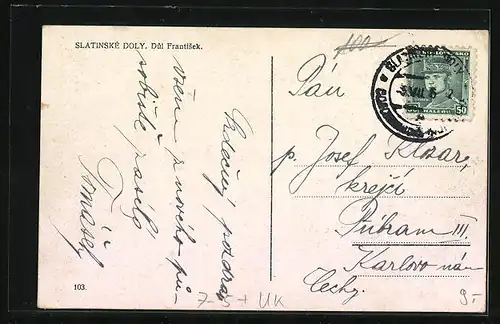 SLATINSKÉ DOLY. Důl František.
Srdečný pozdrav
všem z nového pů-
sobiště zasílá
Tomášek
103.
100-
50
Pán
p. Josef Klozar,
krejčí
Příbram III,
Karlovo nám
Čechy.
7- + UK
9-